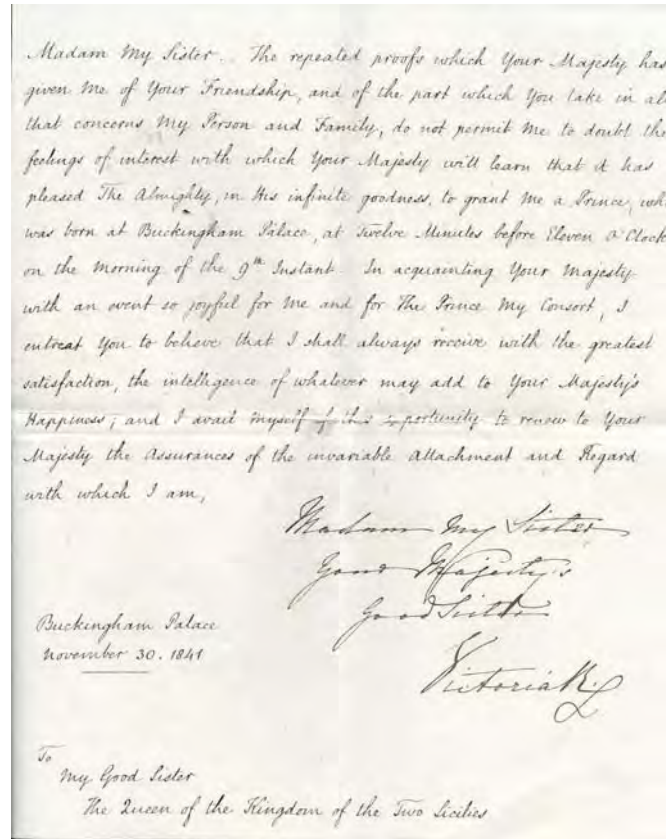 Madam My Sister. The repeated proofs which Your Majesty has
given Me of Your Friendship, and of the part which You take in al
that concerns My Person and Family, do not permit Me to doubt the
feelings of interest with which Your Majesty will learn that it has
pleased The Almighty, in His infinite goodness, to grant Me a Prince, wh
was born at Buckingham Palace, at Twelve Minutes before Eleven O'Clock
on the Morning of the 9th Instant. In acquainting Your Majesty
with an event so joyful for Me and for The Prince My Consort, I
entreat You to believe that I shall always receive with the greatest
satisfaction, the intelligence of whatever may add to Your Majesty's
Happiness; and I avail myself of this opportunity to renew to Your
Majesty the Assurances of the invariable Attachment and Regard
with which I am,
Madam My Sister
Your Majesty's
Good Sister
Victoria R.
Buckingham Palace
November 30. 1841
To
My Good Sister
The Queen of the Kingdom of the Two Sicilies